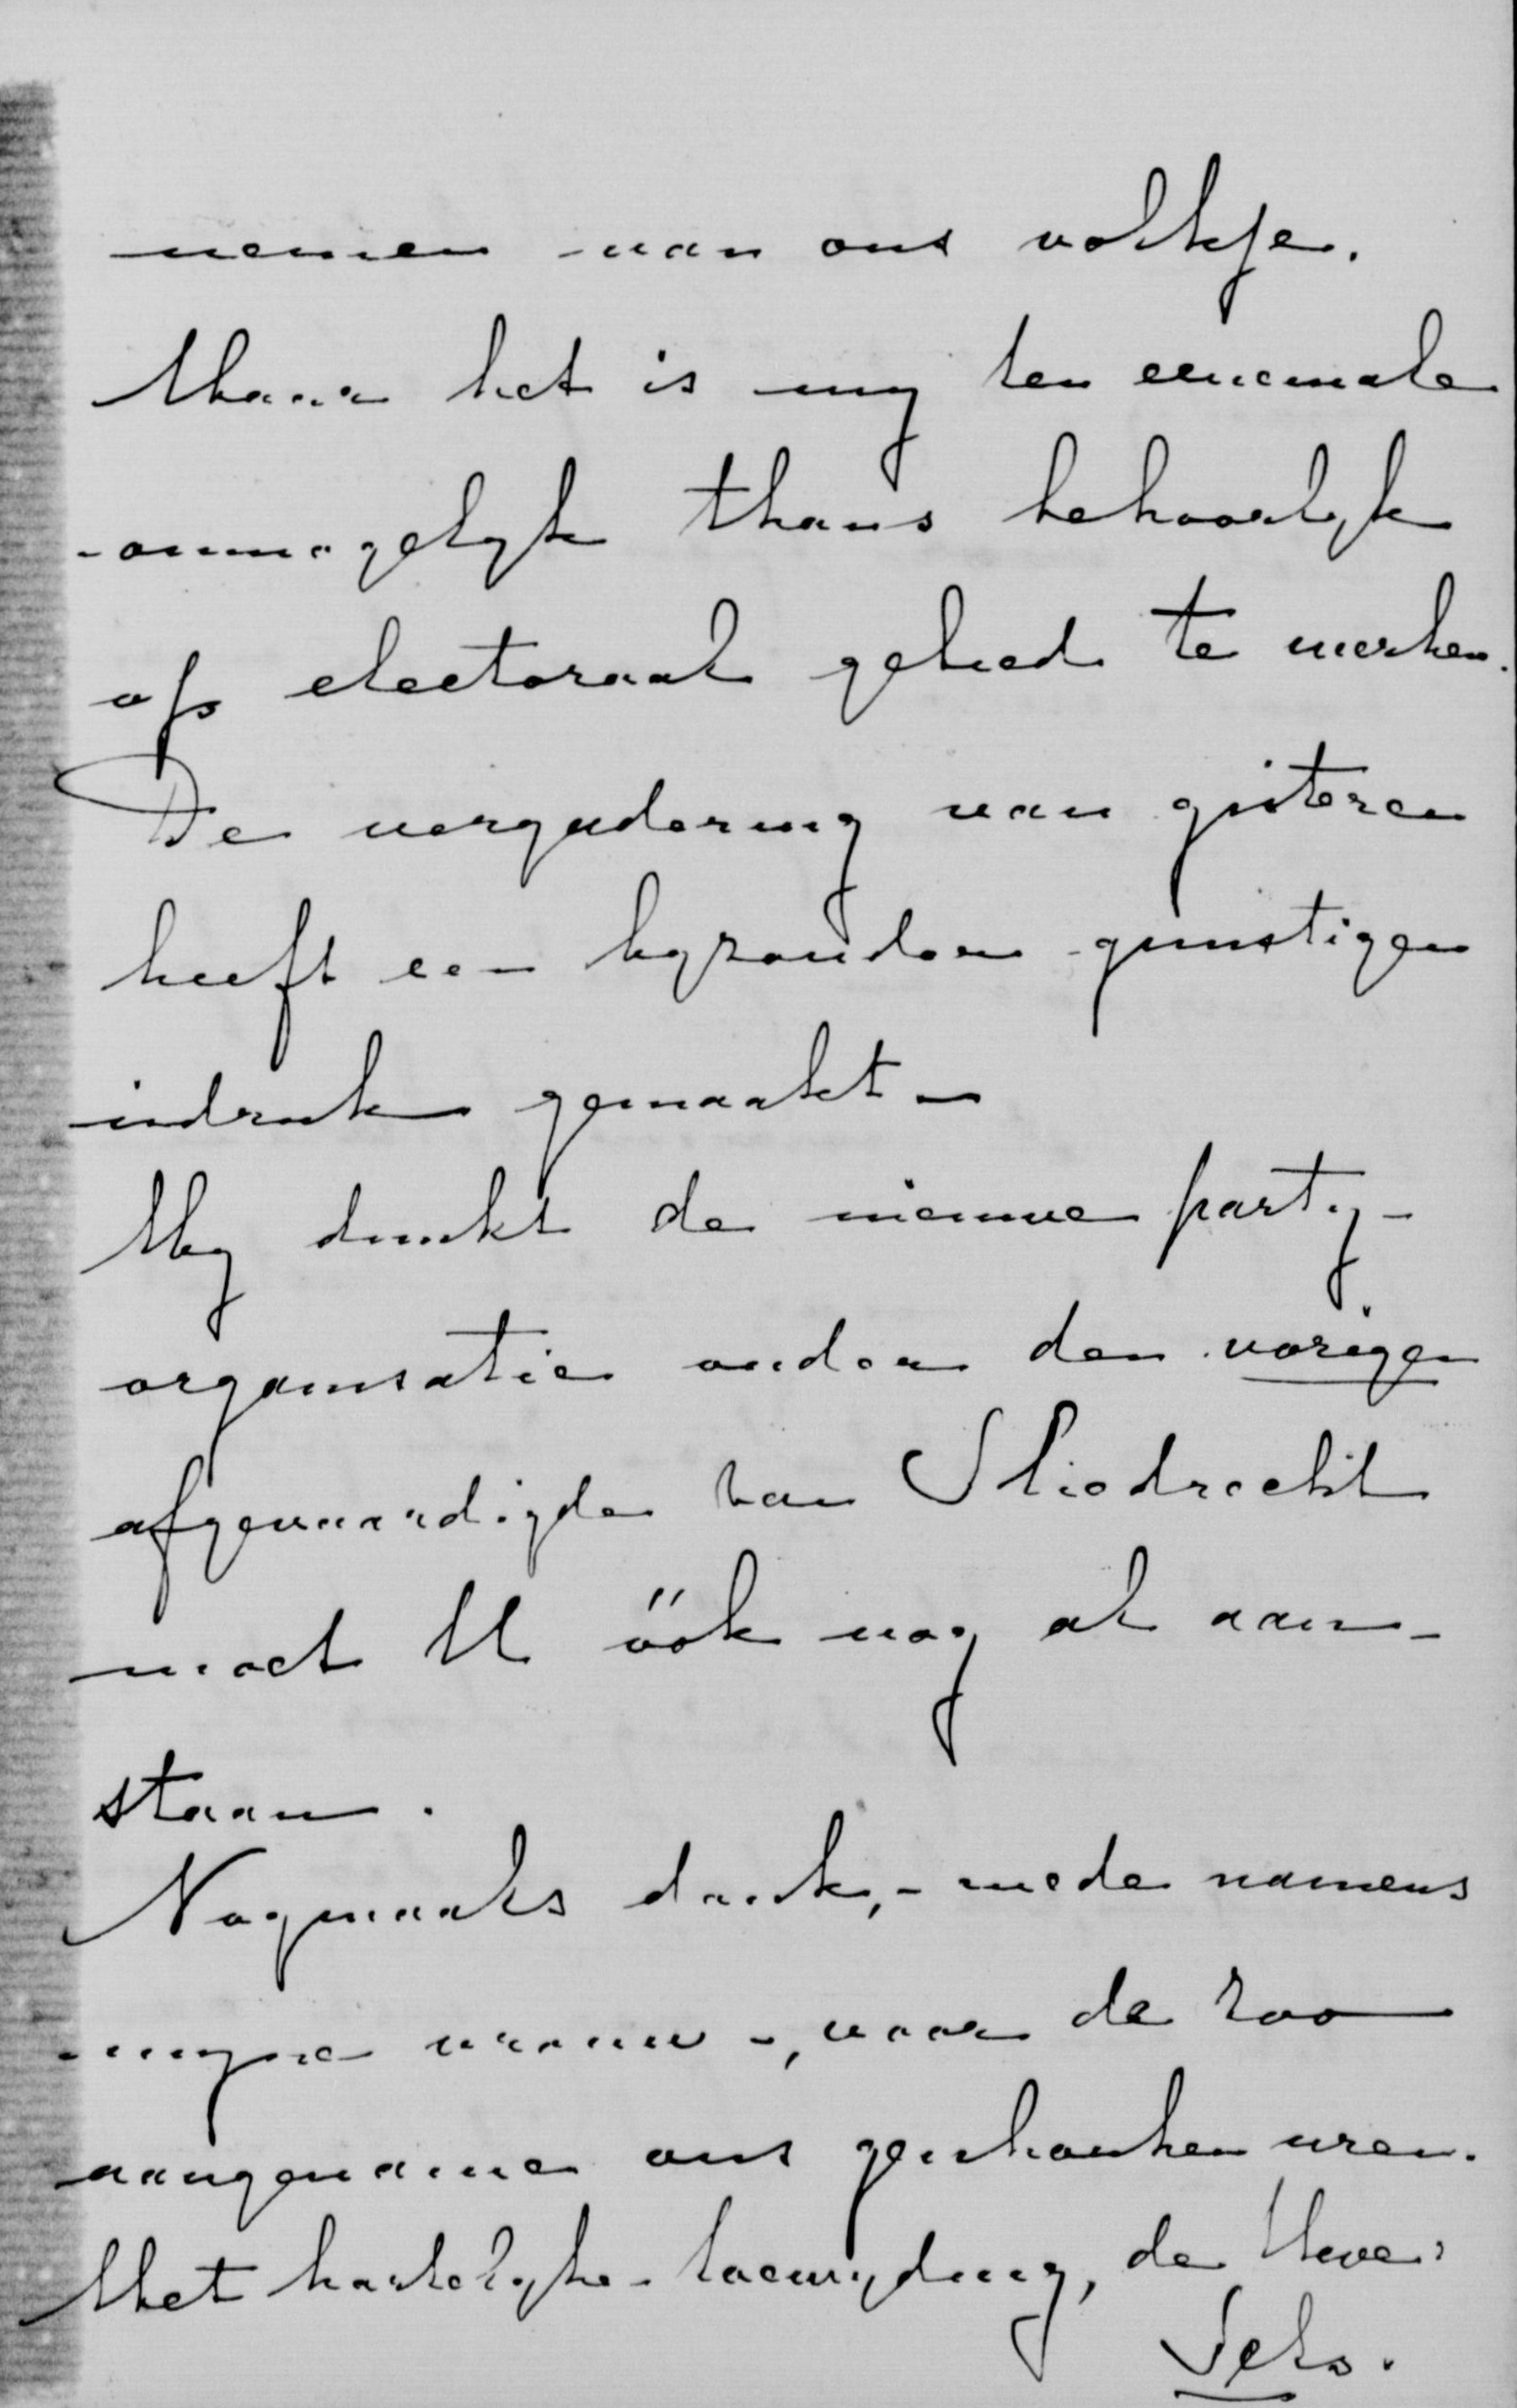 nemen van ons volkje.
Maar het is mij ten eenemale
onmogelijk thans behoorlijk
op electoraal gebied te werken.
De vergadering van gisteren
heeft een bijzonder gunstigen
indruk gemaakt –
Mij dunkt de nieuwe partij-
organisatie onder den vorigen
afgevaardigde van Sliedrecht
moet U óók nog al aan-
staan.
Nogmaals dank, – mede namens
mijne vrouw –, voor de zoo
aangename ons geschonken uren.
Met hartelijke toewijding, de Uwe: